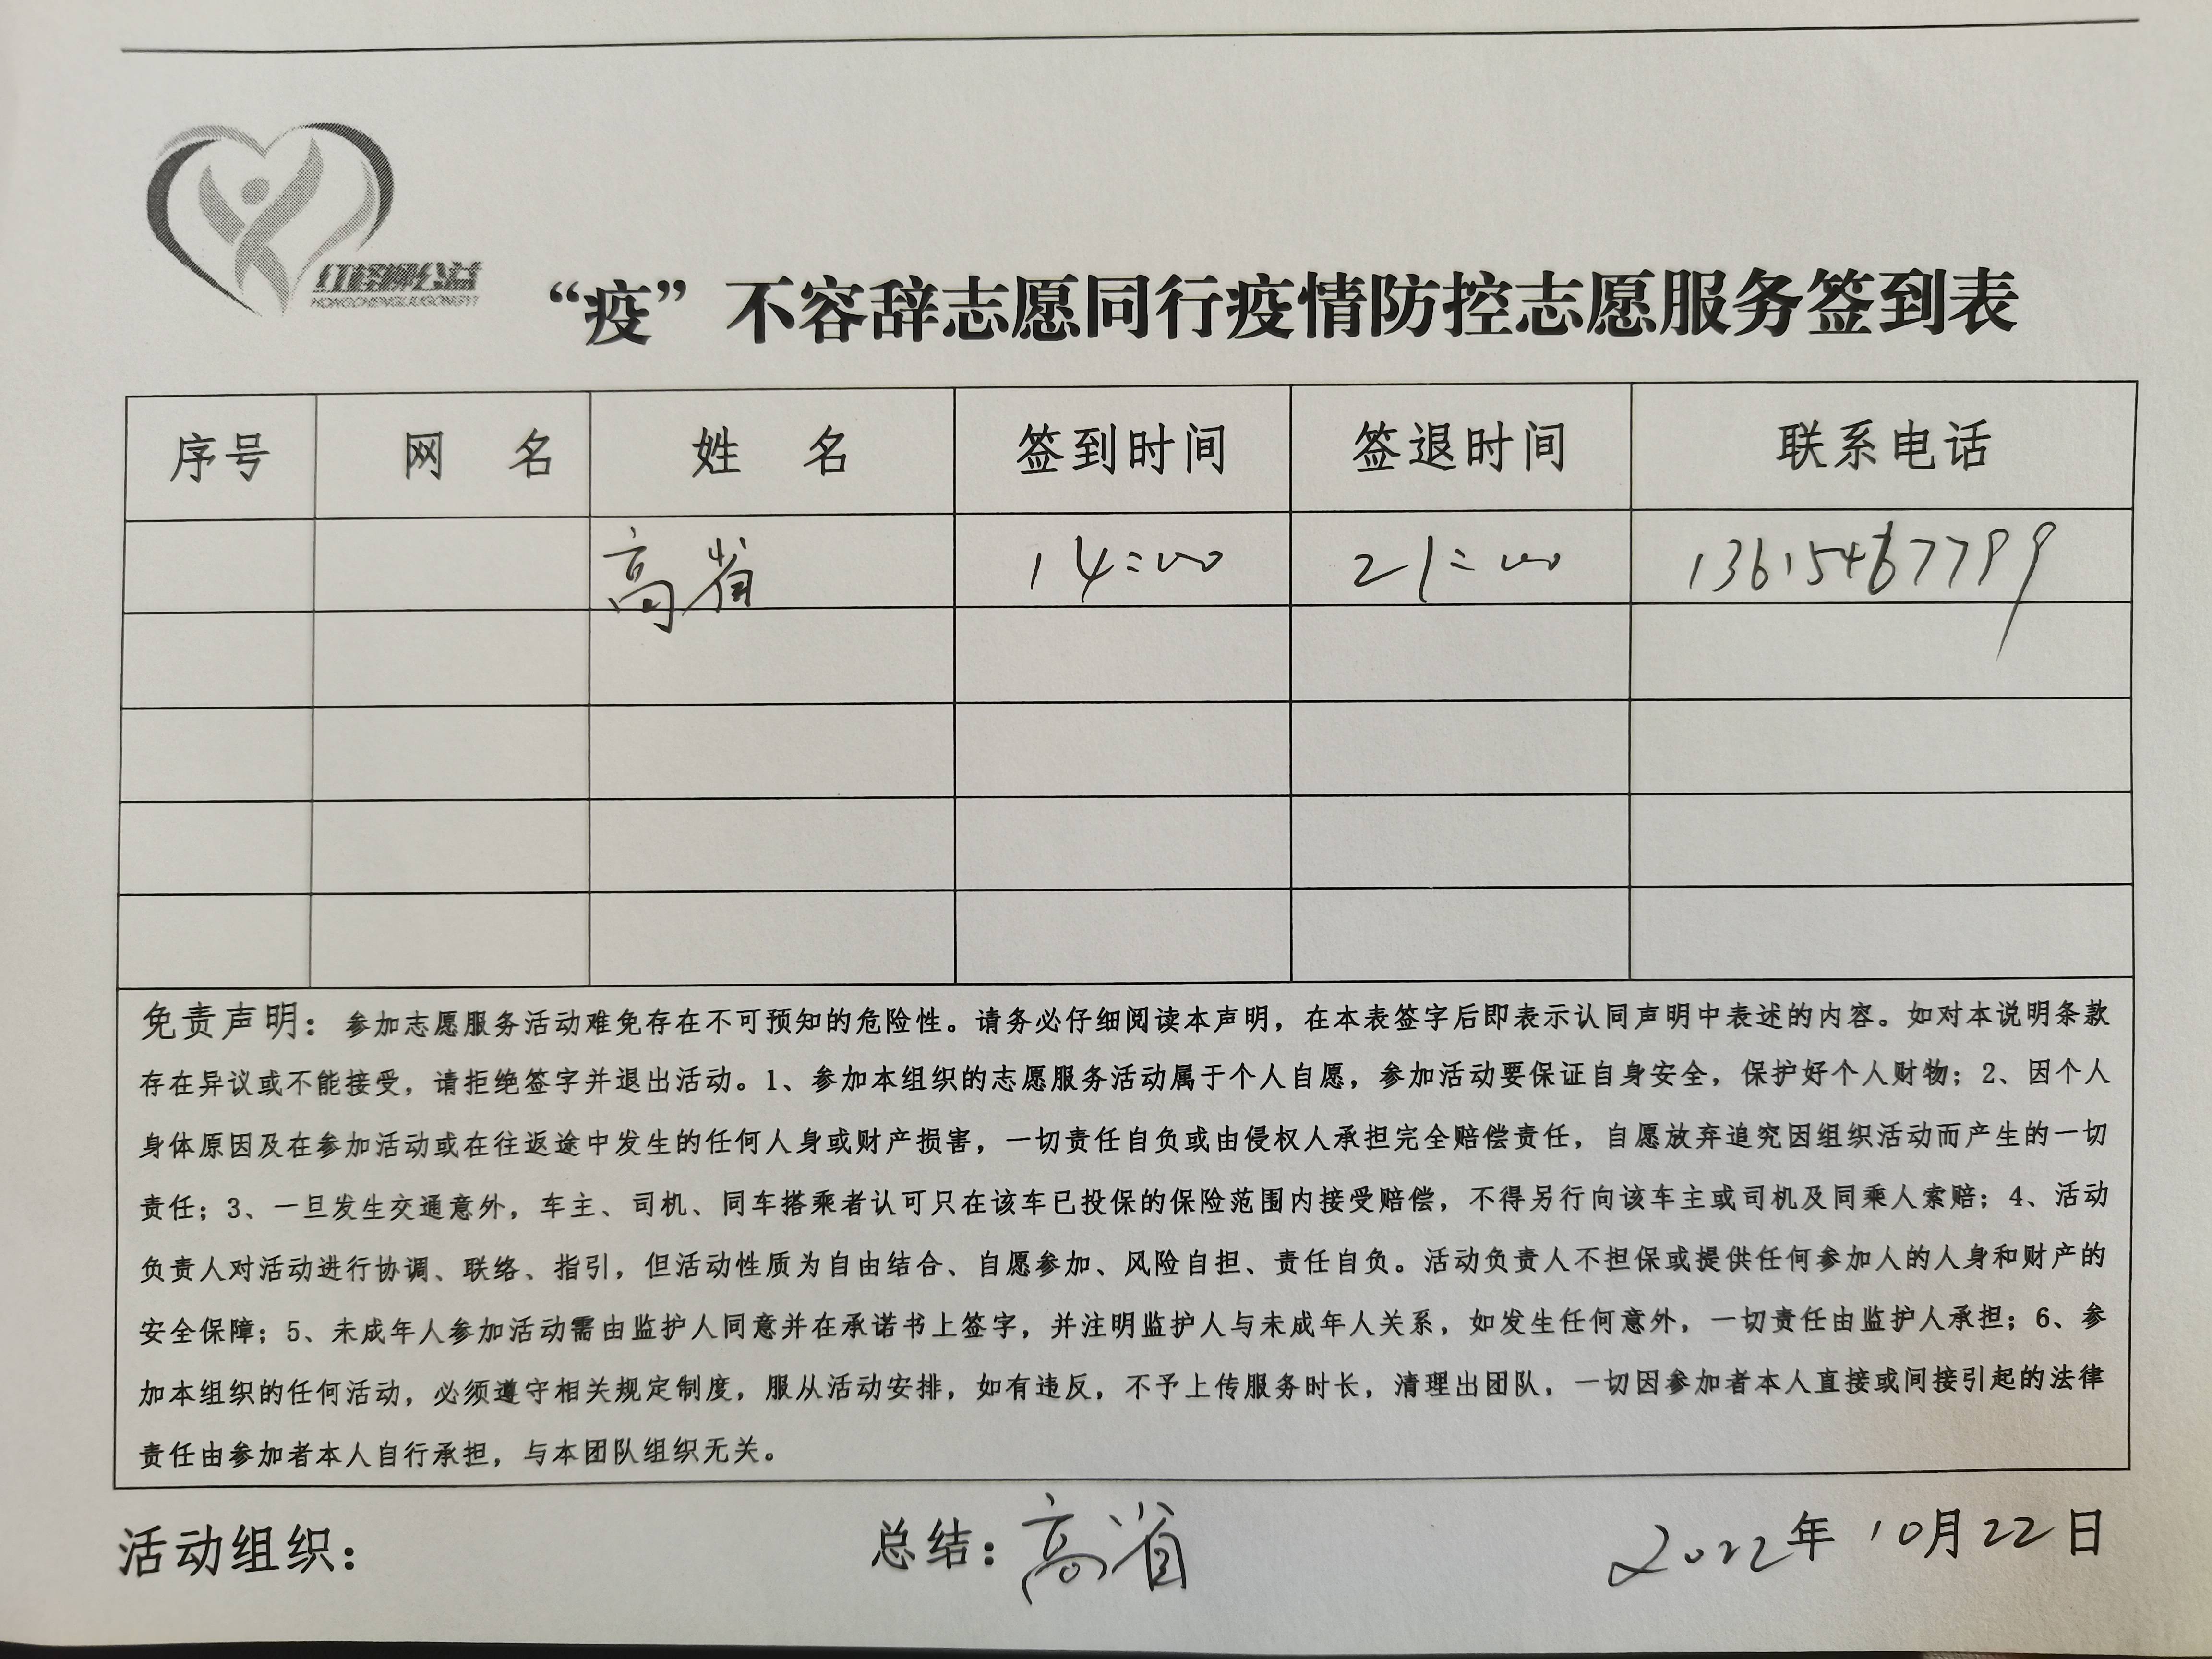 红柽柳公益
HONGCHENGLIUGONGYI
“疫”不容辞志愿同行疫情防控志愿服务签到表
序号 网 名 姓 名 签到时间 签退时间 联系电话
高省 14:00 21:00 13615467799
免责声明：参加志愿服务活动难免存在不可预知的危险性。请务必仔细阅读本声明，在本表签字后即表示认同声明中表述的内容。如对本说明条款
存在异议或不能接受，请拒绝签字并退出活动。1、参加本组织的志愿服务活动属于个人自愿，参加活动要保证自身安全，保护好个人财物；2、因个人
身体原因及在参加活动或在往返途中发生的任何人身或财产损害，一切责任自负或由侵权人承担完全赔偿责任，自愿放弃追究因组织活动而产生的一切
责任；3、一旦发生交通意外，车主、司机、同车搭乘者认可只在该车已投保的保险范围内接受赔偿，不得另行向该车主或司机及同乘人索赔；4、活动
负责人对活动进行协调、联络、指引，但活动性质为自由结合、自愿参加、风险自担、责任自负。活动负责人不担保或提供任何参加人的人身和财产的
安全保障；5、未成年人参加活动需由监护人同意并在承诺书上签字，并注明监护人与未成年人关系，如发生任何意外，一切责任由监护人承担；6、参
加本组织的任何活动，必须遵守相关规定制度，服从活动安排，如有违反，不予上传服务时长，清理出团队，一切因参加者本人直接或间接引起的法律
责任由参加者本人自行承担，与本团队组织无关。
活动组织： 总结：高省 2022年10月22日